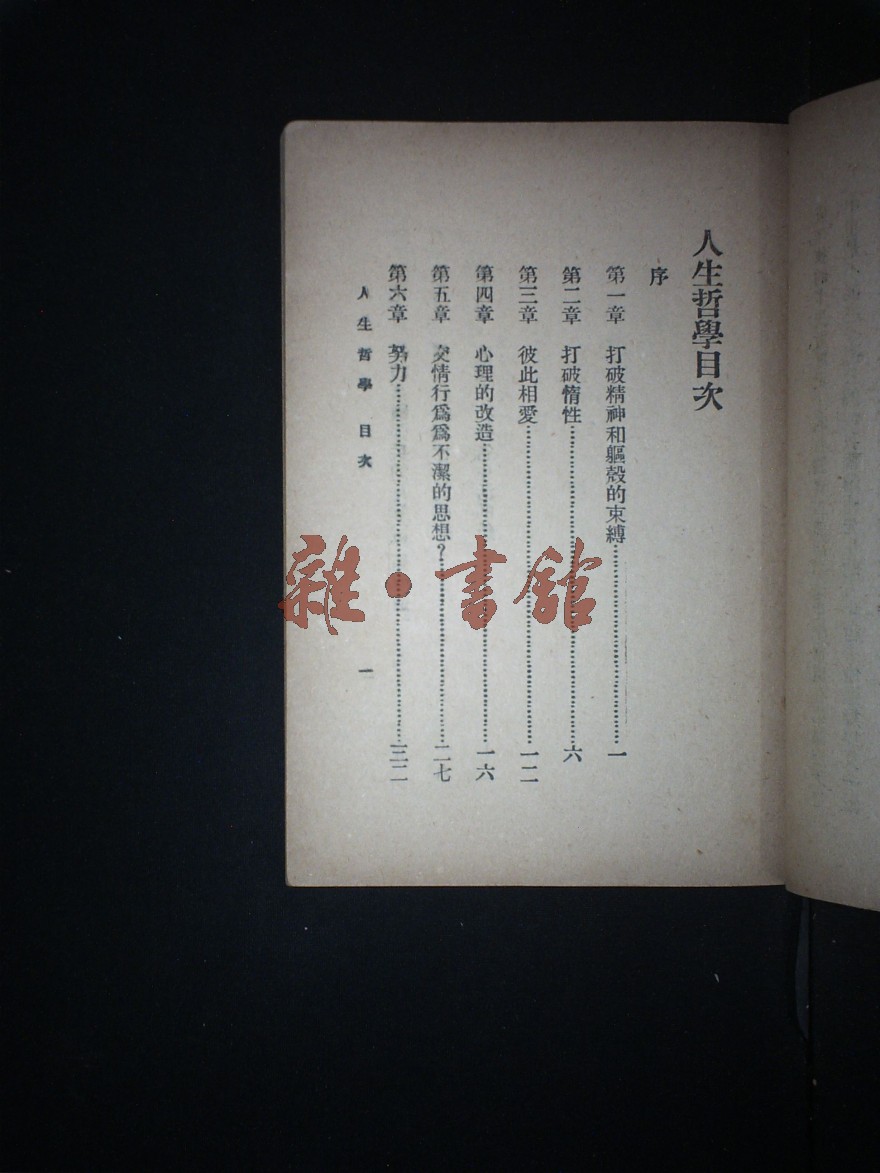 人生哲學目次
序
第一章 打破精神和軀殼的束縛……一
第二章 打破惰性……六
第三章 彼此相愛……一二
第四章 心理的改造……一六
第五章 情行爲爲不潔的思想？……二七
第六章 努力……三二
人生哲學 目次 一
雜·書館